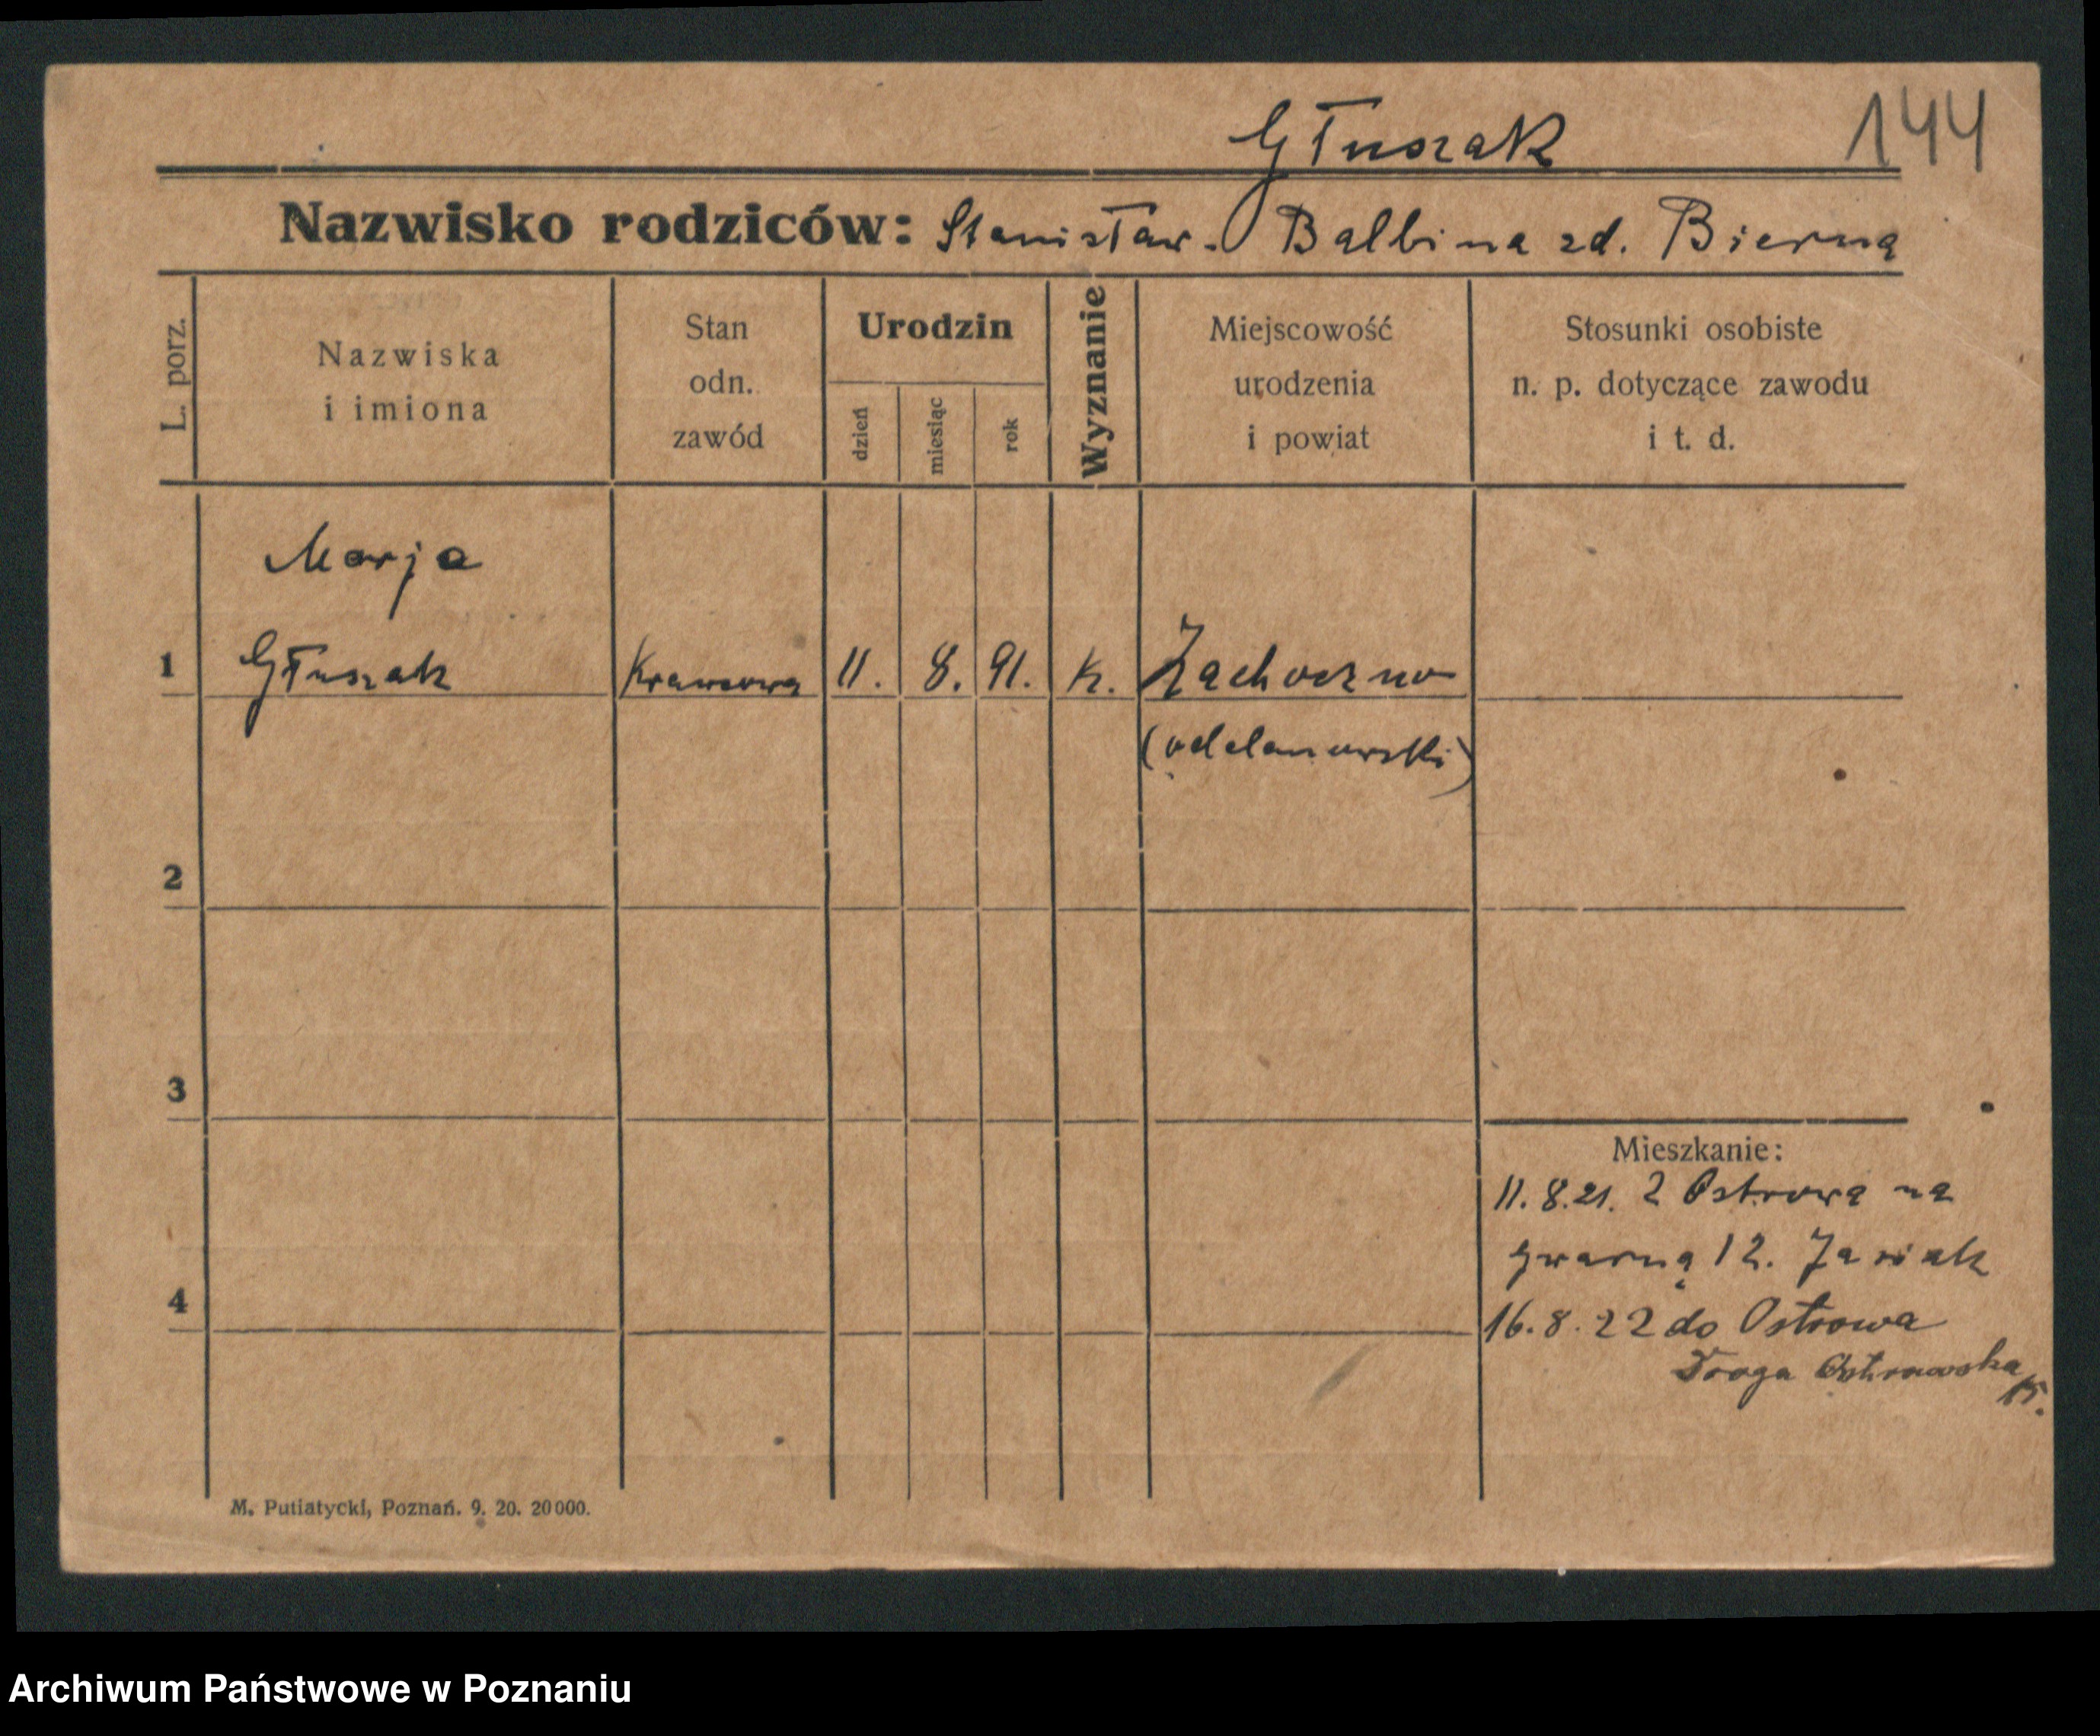 Głuszak
144
Nazwisko rodziców: Stanisław. Balbina zd. Bierną
L. porz.
Nazwiska
i imiona
Stan
odn.
zawód
Urodzin
dzień
miesiąc
rok
Wyznanie
Miejscowość
urodzenia
i powiat
Stosunki osobiste
n. p. dotyczące zawodu
i t. d.
Marja
1 Głuszak Krawcowa 11. 8. 91. k.
2
3
4
Mieszkanie:
11. 8. 21. z Ostrowa na
Gwarną 12.
16. 8. 22 do Ostrowa
Droga Ostrowska
15.
M. Putiatycki, Poznań. 9. 20. 20000.
Archiwum Państwowe w Poznaniu